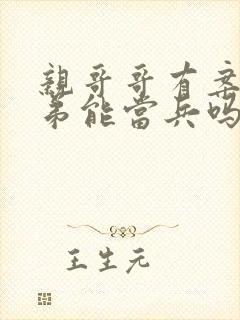 親哥哥有案
弟能當兵吗
王生元